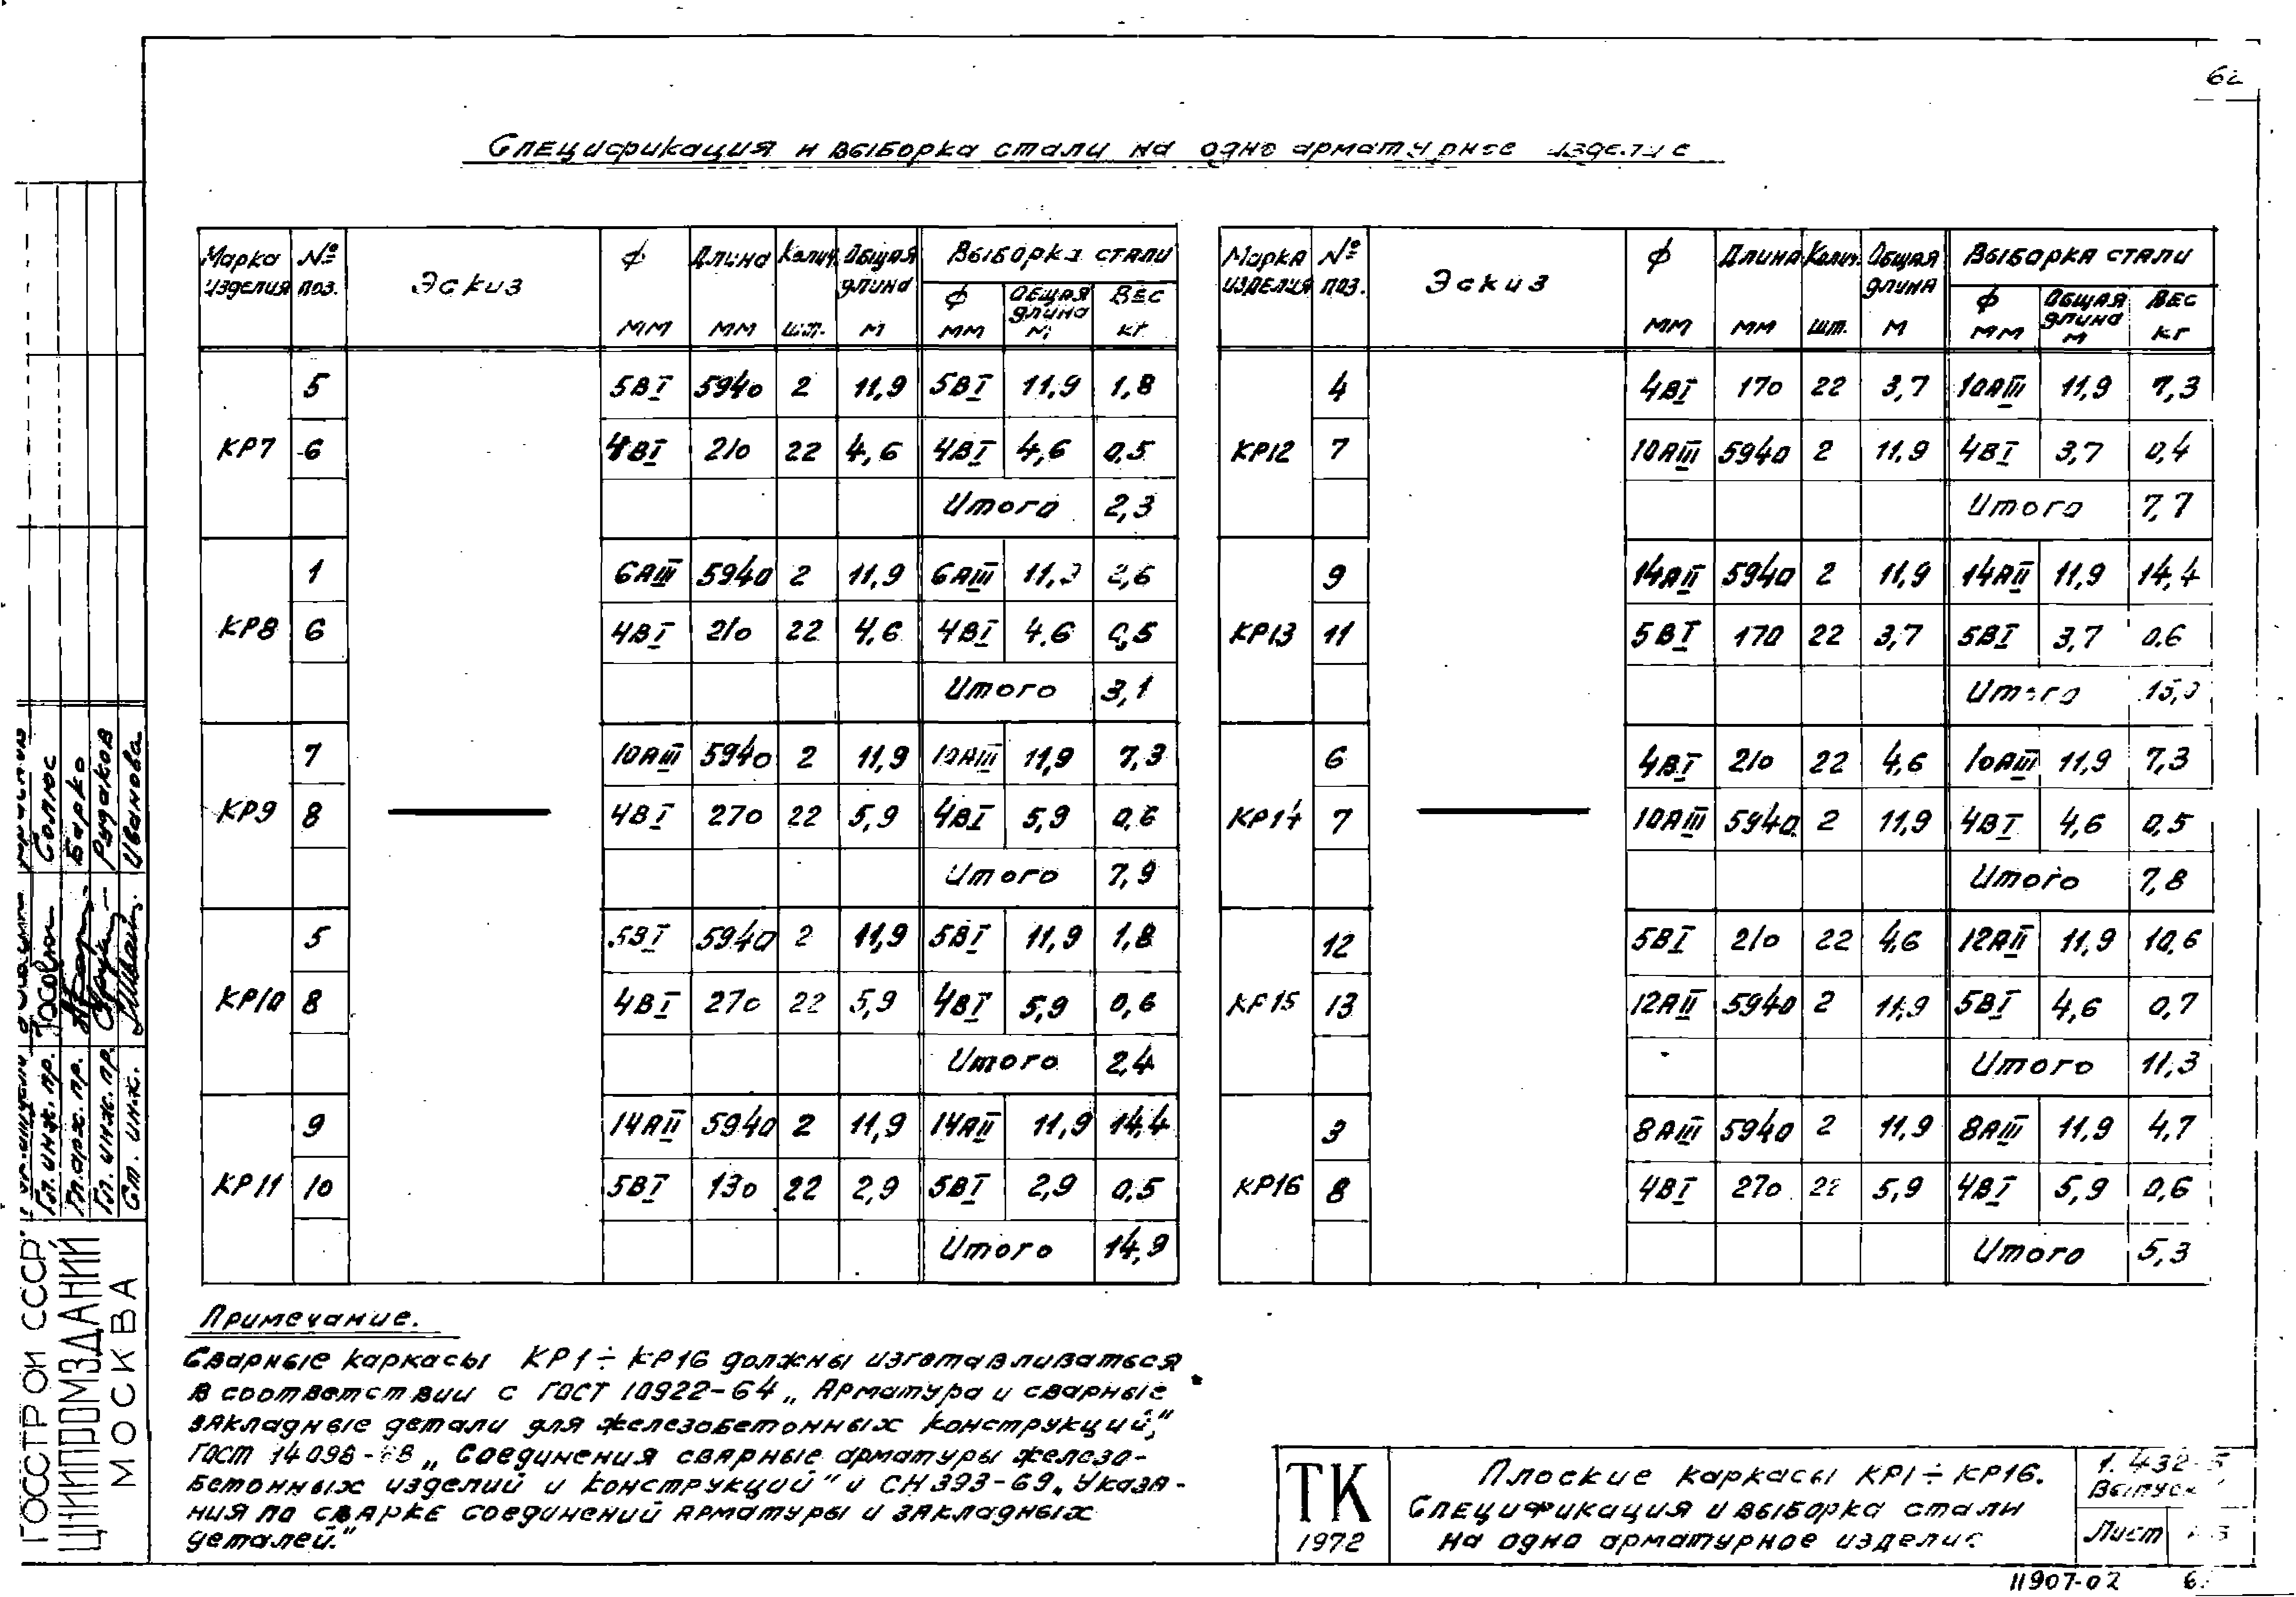 Спецификация и выборка стали на одно арматурное изделие
Марка изделия | № поз. | Эскиз | ф мм | Длина мм | Колич. шт. | Общая длина м | Выборка стали: ф мм | Общая длина м | Вес кг
КР7 | 5 | 5ВI | 5940 | 2 | 11,9 | 5ВI | 11,9 | 1,8
6 | 4ВI | 210 | 22 | 4,6 | 4ВI | 4,6 | 0,5
Итого 2,3
КР8 | 1 | 6АIII | 5940 | 2 | 11,9 | 6АIII | 11,9 | 2,6
6 | 4ВI | 210 | 22 | 4,6 | 4ВI | 4,6 | 0,5
Итого 3,1
КР9 | 7 | 10АIII | 5940 | 2 | 11,9 | 10АIII | 11,9 | 7,3
8 | 4ВI | 270 | 22 | 5,9 | 4ВI | 5,9 | 0,6
Итого 7,9
КР10 | 5 | 5ВI | 5940 | 2 | 11,9 | 5ВI | 11,9 | 1,8
8 | 4ВI | 270 | 22 | 5,9 | 4ВI | 5,9 | 0,6
Итого 2,4
КР11 | 9 | 14АII | 5940 | 2 | 11,9 | 14АII | 11,9 | 14,4
10 | 5ВI | 130 | 22 | 2,9 | 5ВI | 2,9 | 0,5
Итого 14,9
Марка изделия | № поз. | Эскиз | ф мм | Длина мм | Колич. шт. | Общая длина м | Выборка стали: ф мм | Общая длина м | Вес кг
КР12 | 4 | 4ВI | 170 | 22 | 3,7 | 10АIII | 11,9 | 7,3
7 | 10АIII | 5940 | 2 | 11,9 | 4ВI | 3,7 | 0,4
Итого 7,7
КР13 | 9 | 14АII | 5940 | 2 | 11,9 | 14АII | 11,9 | 14,4
11 | 5ВI | 170 | 22 | 3,7 | 5ВI | 3,7 | 0,6
Итого 15,0
КР14 | 6 | 4ВI | 210 | 22 | 4,6 | 10АIII | 11,9 | 7,3
7 | 10АIII | 5940 | 2 | 11,9 | 4ВI | 4,6 | 0,5
Итого 7,8
КР15 | 12 | 5ВI | 210 | 22 | 4,6 | 12АII | 11,9 | 10,6
13 | 12АII | 5940 | 2 | 11,9 | 5ВI | 4,6 | 0,7
Итого 11,3
КР16 | 3 | 8АIII | 5940 | 2 | 11,9 | 8АIII | 11,9 | 4,7
8 | 4ВI | 270 | 22 | 5,9 | 4ВI | 5,9 | 0,6
Итого 5,3
Примечание.
Сварные каркасы КР1÷КР16 должны изготавливаться
в соответствии с ГОСТ 10922-64 „Арматура и сварные
закладные детали для железобетонных конструкций",
ГОСТ 14098-68 „Соединения сварные арматуры железо-
бетонных изделий и конструкций" и СН 393-69 „Указа-
ния по сварке соединений арматуры и закладных
деталей."
ТК
1972
Плоские каркасы КР1÷КР16.
Спецификация и выборка стали
на одно арматурное изделие
1.432-5
Выпуск
Лист
11907-02
ГОССТРОЙ СССР
ЦНИИПРОМЗДАНИЙ
МОСКВА
Гл. инж. пр. Солюс
Гл. арх. пр. Барко
Гл. инж. пр. Рудаков
Ст. инж. Иванова